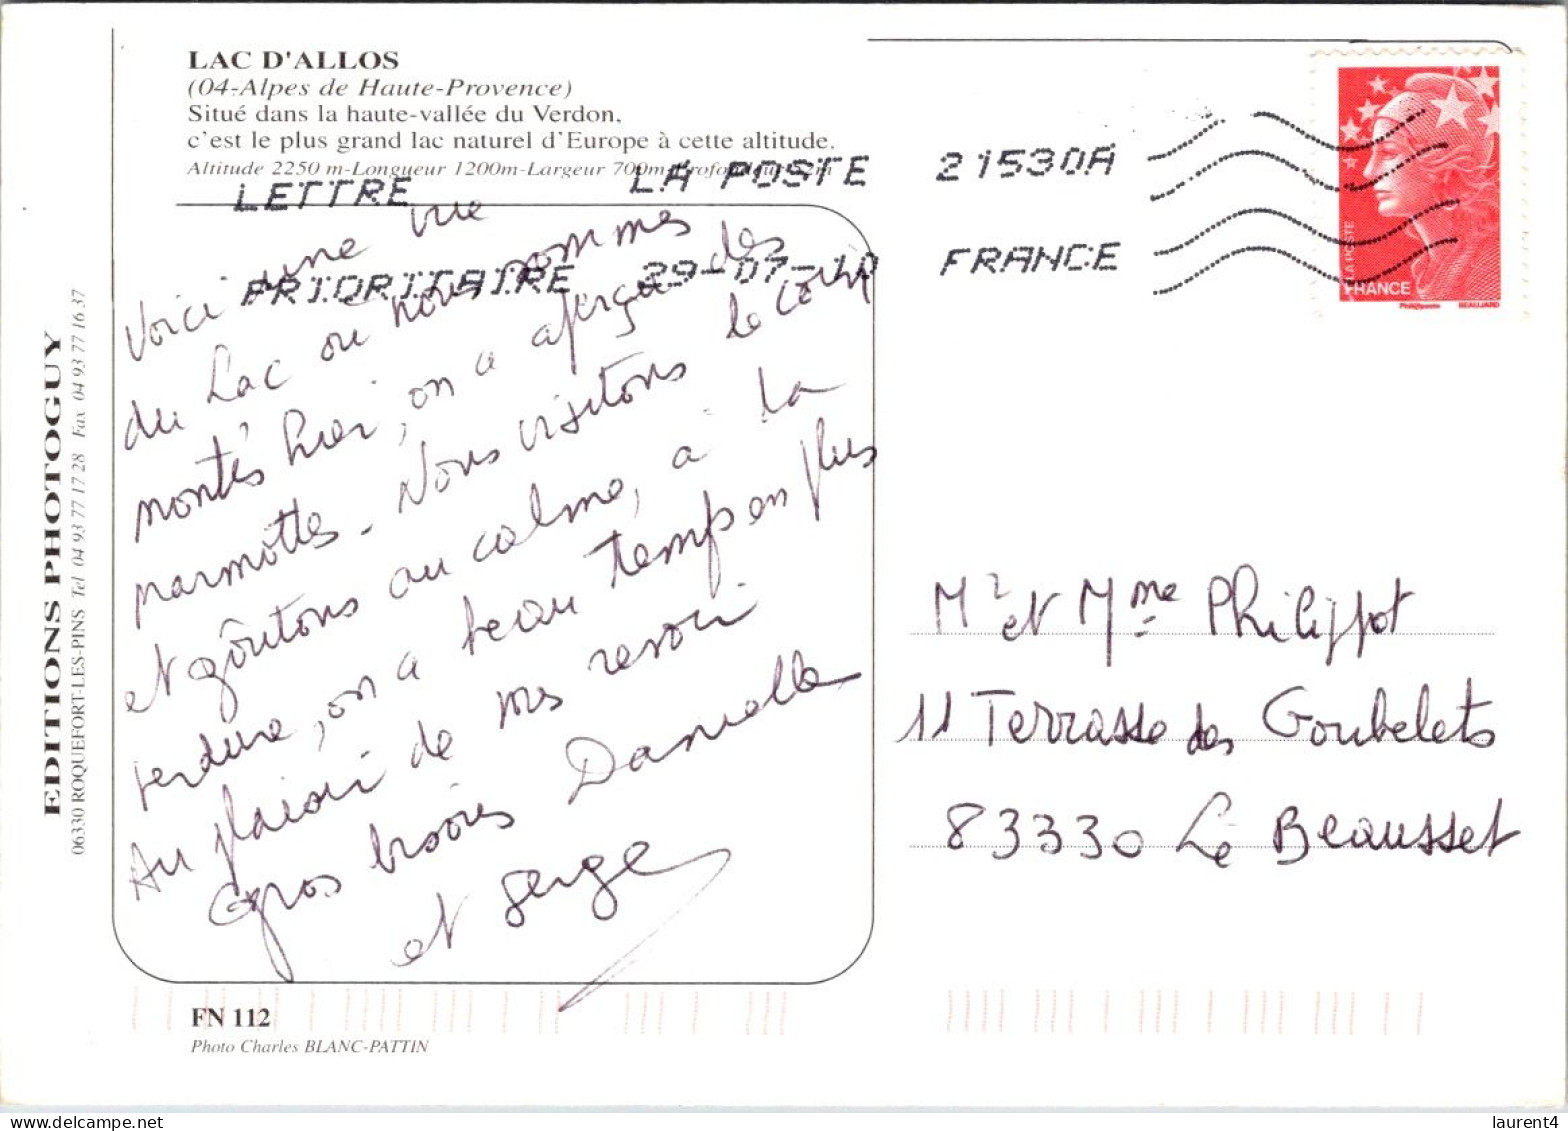 LAC D'ALLOS
(04-Alpes de Haute-Provence)
Situé dans la haute-vallée du Verdon,
c'est le plus grand lac naturel d'Europe à cette altitude.
Altitude 2250 m-Longueur 1200m-Largeur 700m-Profondeur 42m
LETTRE LA POSTE 21530A
PRIORITAIRE 29-07-10 FRANCE
LA POSTE
FRANCE
Phil@poste BEAUJARD
Voici une vue
du Lac où nous sommes
montés hier, on a aperçu des
marmottes - Nous visitons le coin
et goûtons au calme, à la
verdure, on a beau temps en plus
Au plaisir de vous revoir
Gros bisous Danielle
et Serge
Mr et Mme Philippot
11 Terrasse des Goubelets
83330 Le Beausset
EDITIONS PHOTOGUY
06330 ROQUEFORT-LES-PINS Tel 04 93 77 17 28 Fax 04 93 77 16 37
FN 112
Photo Charles BLANC-PATTIN
laurent4